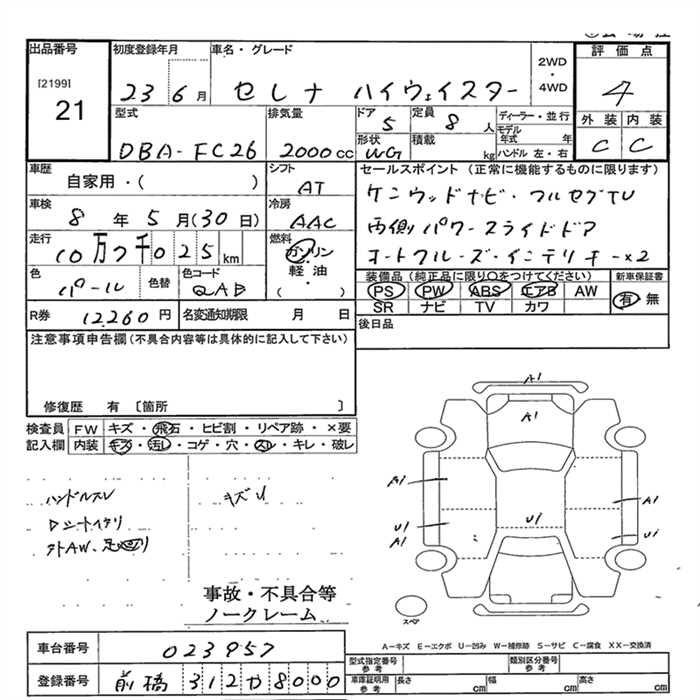 出品番号
[2199]
21
初度登録年月
23 6月
車名・グレード
セレナ ハイウェイスター
2WD
・
4WD
評価点
4
型式
DBA-FC26
排気量
2000cc
ドア
5
定員
8人
形状
WG
積載
kg
ディーラー・並行
モデル年式 年
ハンドル 左・右
外装 内装
C C
車歴
自家用・( )
シフト
AT
車検
8年5月(30日)
冷房
AAC
走行
10万7千025km
燃料
ガソリン
軽油
( )
色
パール
色替
色コード
QAB
R券 12,260円
名変通知期限 月 日
セールスポイント(正常に機能するものに限ります)
ケンウッドナビ・フルセグTV
両側パワースライドドア
オートクルーズ・インテリキー×2
装備品(純正品に限り○をつけてください)
PS PW ABS エアB AW
SR ナビ TV カワ
新車保証書
有 無
後日品
注意事項申告欄(不具合内容等は具体的に記入して下さい)
修復歴 有 〔箇所 〕
検査員記入欄
FW キズ・飛石・ヒビ割・リペア跡・×要
内装 キズ・汚レ・コゲ・穴・スレ・キレ・破レ
ハンドルスレ
キズU
外AW、
A1
A1
A1
A1
U1
A1
U1
U1
スペア
事故・不具合等
ノークレーム
A-キズ E-エクボ U-凹み W-補修跡 S-サビ C-腐食 XX-交換済
車台番号 023957
登録番号 前橋 312 や 8000
型式指定番号 参考
類別区分番号 参考
車庫証明用 参考
長さ cm
幅 cm
高さ cm